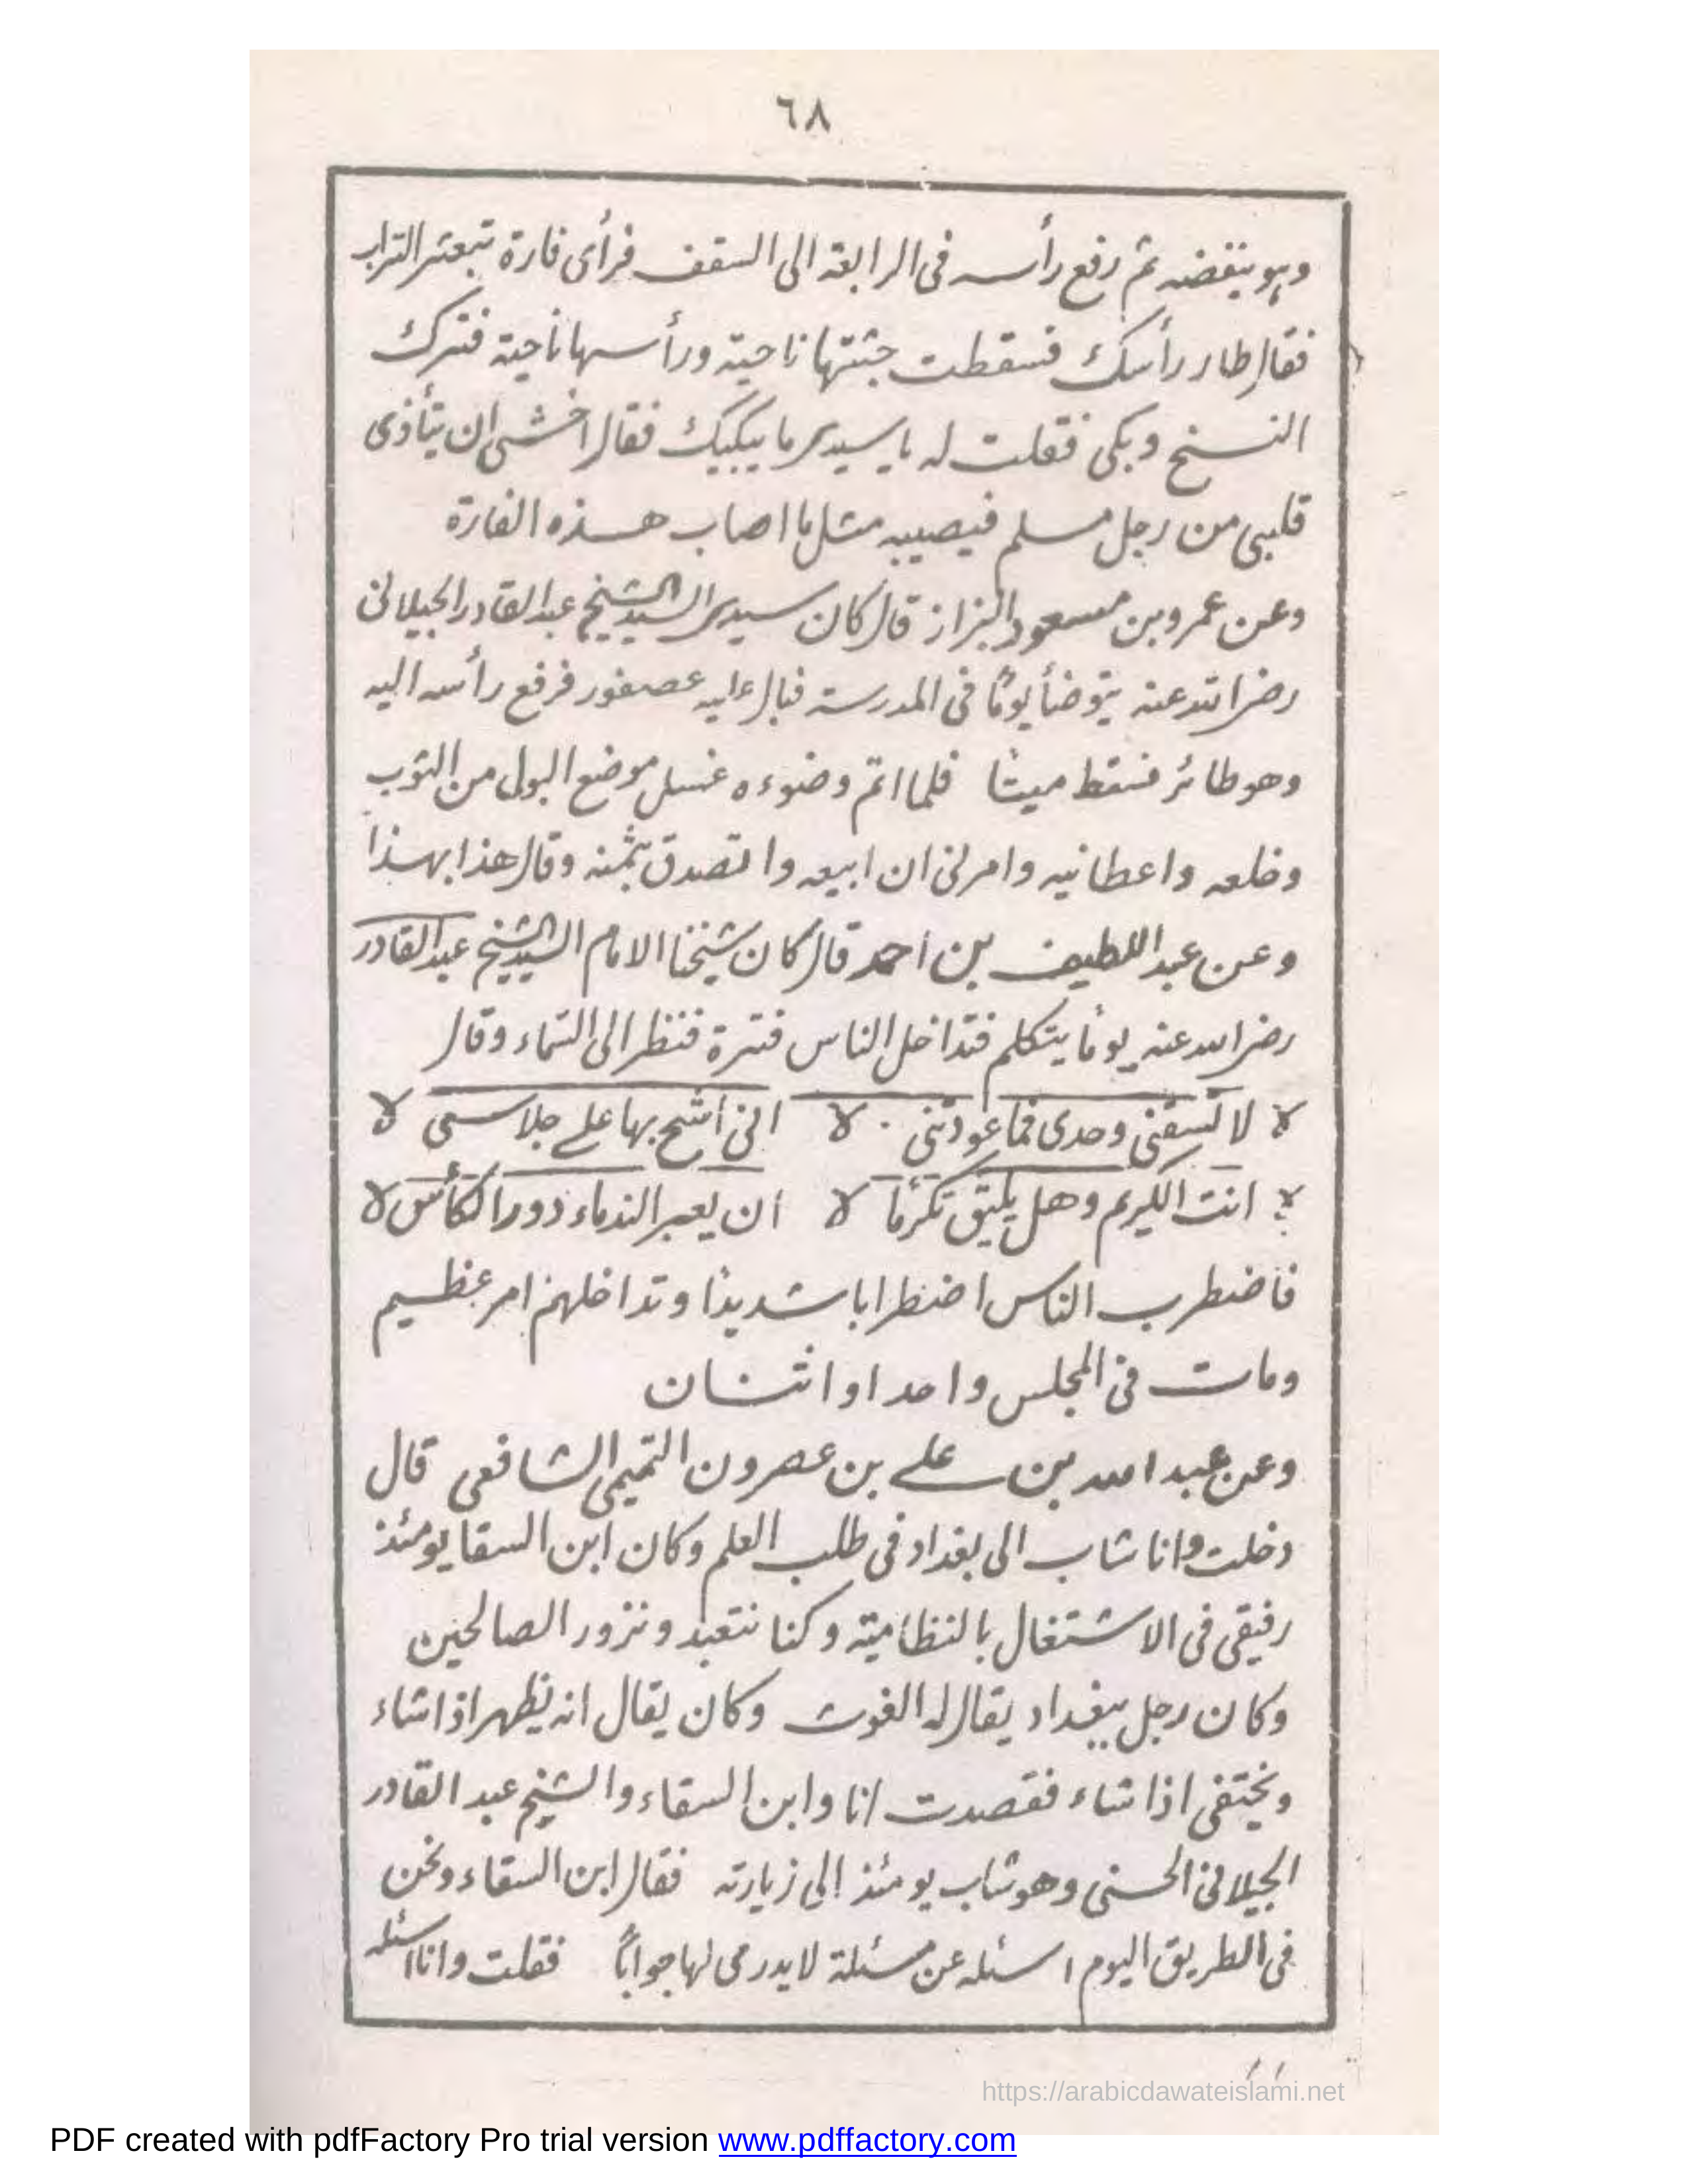 ٦٨
وهو ينفضه ثم رفع رأسه فى الرابعة الى السقف فرأى فارة تبعثر التراب
فقال طار رأسك فسقطت جثتها ناحية ورأسها ناحية فترك
النسخ وبكى فقلت له يا سيدى ما يبكيك فقال اخشى ان يتأذى
قلبى من رجل مسلم فيصيبه مثل ما اصاب هذه الفارة
وعن عمرو بن مسعود البزاز قال كان سيدى السيد الشيخ عبد القادر الجيلانى
رضى الله عنه يتوضأ يومًا فى المدرسة فبال عليه عصفور فرفع رأسه اليه
وهو طائر فسقط ميتًا فلما اتم وضوءه غسل موضع البول من الثوب
وخلعه واعطانيه وامرنى ان ابيعه واتصدق بثمنه وقال هذا بهذا
وعن عبد اللطيف بن احمد قال كان شيخنا الامام السيد الشيخ عبد القادر
رضى الله عنه يومًا يتكلم فتداخل الناس فترة فنظر الى السماء وقال
لا تسقنى وحدى فما عودتنى انى اشح بها على جلاسى
انت الكريم وهل يليق تكرمًا ان يعبر الندماء دور الكأس
فاضطرب الناس اضطرابا شديدًا وتداخلهم امر عظيم
ومات فى المجلس واحد او اثنان
وعن عبد الله بن على بن عصرون التميمى الشافعى قال
دخلت وانا شاب الى بغداد فى طلب العلم وكان ابن السقا يومئذ
رفيقى فى الاشتغال بالنظامية وكنا نتعبد ونزور الصالحين
وكان رجل ببغداد يقال له الغوث وكان يقال انه يظهر اذا شاء
ويختفى اذا شاء فقصدت انا وابن السقاء والشيخ عبد القادر
الجيلانى الحسنى وهو شاب يومئذ الى زيارته فقال ابن السقاء ونحن
فى الطريق اليوم اسئله عن مسئلة لا يدرى لها جوابًا فقلت وانا اسئله
https://arabicdawateislami.net
PDF created with pdfFactory Pro trial version www.pdffactory.com